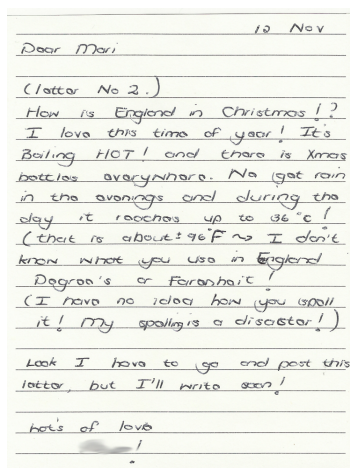 12 Nov
Dear Mari
(letter No 2.)
How is England in Christmas!?
I love this time of year! It's
Boiling HOT! and there is Xmas
beetles everywhere. We get rain
in the evenings and during the
day it reaches up to 36°c!
(that is about ± 96°F ~> I don't
know what you use in England
Degree's or Farenhait!
(I have no idea how you spell
it! My spelling is a disaster!)
Look I have to go and post this
letter, but I'll write soon!
Lot's of love
!